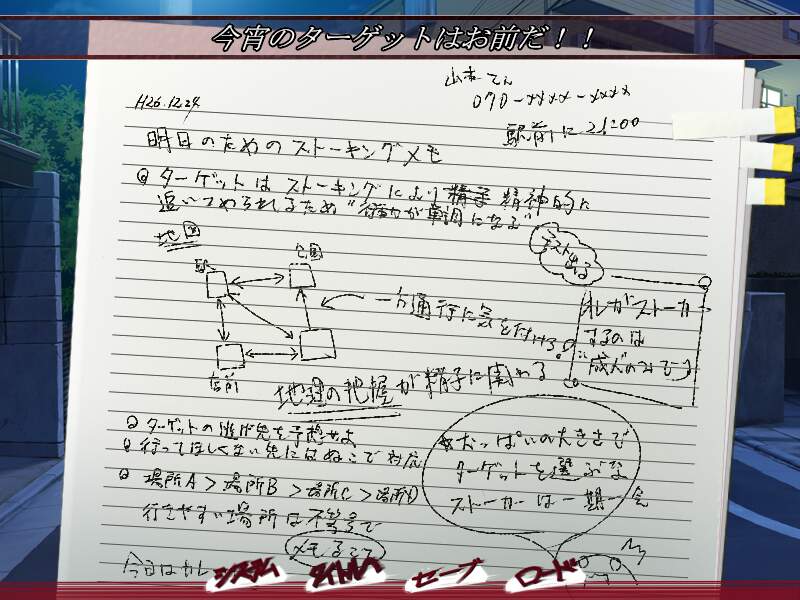 今宵のターゲットはお前だ！！
H26.12.24
山本 てん
070-××××-××××
駅前に 21:00
明日のための ストーキングメモ
ターゲットは ストーキングにより 精神的に
追いつめられてるため "行動が単調になる"
地図
公園
駅
テスト出る
一方通行に気を付けろ。
オレがストーカー
するのは
"成人のみでーす
地理の把握が精子に関わる
ターゲットの逃げ先を予想せよ
行ってほしくない先にはぬこで対応
場所A > 場所B > 場所C > 場所D
行きやすい場所は不等号で
メモること
おっぱいの大きさで
ターゲットを選ぶな
ストーカーは一期一会
今日はカレ
システム
タイトルへ
セーブ
ロード